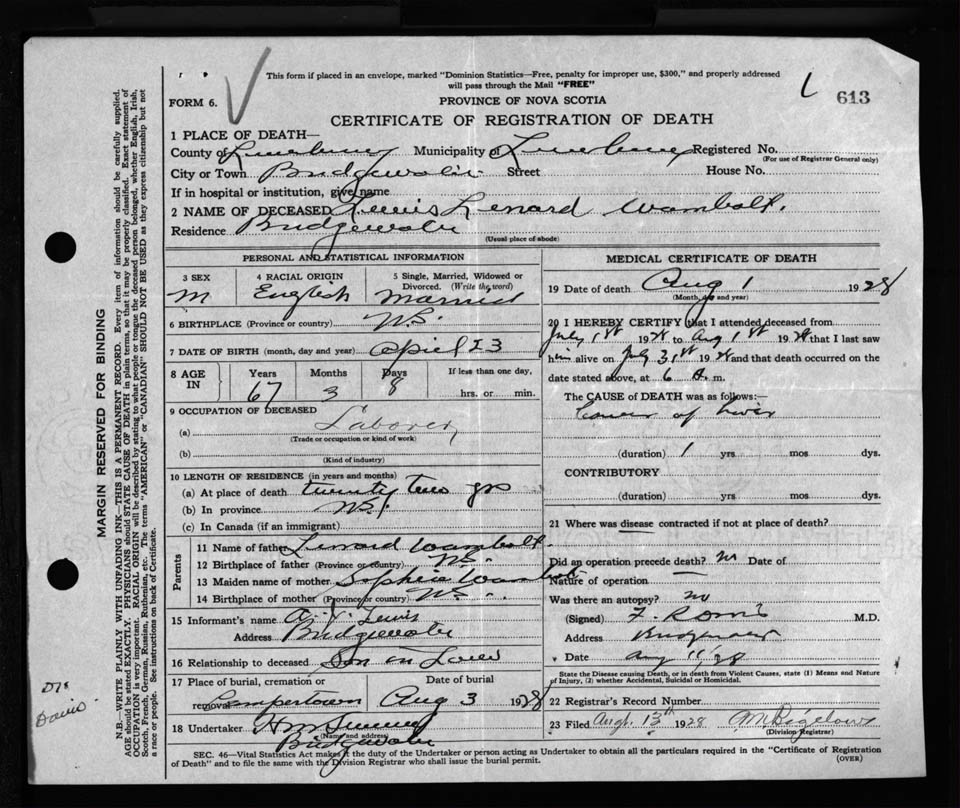 This form if placed in an envelope, marked "Dominion Statistics—Free, penalty for improper use, $300," and properly addressed
will pass through the Mail "FREE"
L 613
FORM 6.
PROVINCE OF NOVA SCOTIA
CERTIFICATE OF REGISTRATION OF DEATH
1 PLACE OF DEATH—
County of Lunenburg Municipality of Lunenburg Registered No.
(For use of Registrar General only)
City or Town Bridgewater Street House No.
If in hospital or institution, give name
2 NAME OF DECEASED Lewis Lenard Wambolt.
Residence Bridgewater
(Usual place of abode)
PERSONAL AND STATISTICAL INFORMATION
3 SEX 4 RACIAL ORIGIN 5 Single, Married, Widowed or
Divorced. (Write the word)
M English Married
6 BIRTHPLACE (Province or country) N.S.
7 DATE OF BIRTH (month, day and year) April 23
8 AGE IN Years Months Days If less than one day,
67 3 8 hrs. or min.
9 OCCUPATION OF DECEASED
(a) Laborer
(Trade or occupation or kind of work)
(b)
(Kind of industry)
10 LENGTH OF RESIDENCE (in years and months)
(a) At place of death twenty two yrs
(b) In province N.S.
(c) In Canada (if an immigrant)
Parents
11 Name of father Lenard Wambolt.
12 Birthplace of father (Province or country) N.S.
13 Maiden name of mother Sophia Wambolt
14 Birthplace of mother (Province or country) N.S.
15 Informant's name A. J. Lewis
Address Bridgewater
16 Relationship to deceased Son in Law
17 Place of burial, cremation or Date of burial
removal Aug 3 1928
18 Undertaker
(Name and address)
Bridgewater
MEDICAL CERTIFICATE OF DEATH
19 Date of death Aug 1 1928
(Month, day and year)
20 I HEREBY CERTIFY that I attended deceased from
July 1st 1928 to Aug 1st 1928 that I last saw
him alive on July 31st 1928 and that death occurred on
date stated above, at 6 a. m.
The CAUSE of DEATH was as follows:—
Cancer of Liver
(duration) 1 yrs mos dys.
CONTRIBUTORY
(duration) yrs. mos. dys.
21 Where was disease contracted if not at place of death?
Did an operation precede death? no Date of
Nature of operation
Was there an autopsy? no
(Signed) M.D.
Address Bridgewater
Date Aug 11/28
State the Disease causing Death, or in death from Violent Causes, state (1) Means and Nature
of Injury, (2) whether Accidental, Suicidal or Homicidal.
22 Registrar's Record Number
23 Filed Augt. 13th 1928 M Bigelow
(Division Registrar)
SEC. 46—Vital Statistics Act makes it the duty of the Undertaker or person acting as Undertaker to obtain all the particulars required in the "Certificate of Registration
of Death" and to file the same with the Division Registrar who shall issue the burial permit.
(OVER)
MARGIN RESERVED FOR BINDING
N.B.—WRITE PLAINLY WITH UNFADING INK—THIS IS A PERMANENT RECORD. Every item of information should be carefully supplied.
AGE should be stated EXACTLY. PHYSICIANS should STATE CAUSE OF DEATH in plain terms, so that it may be properly classified. Exact statement of
OCCUPATION is very important. RACIAL ORIGIN will be described by stating to what people or tongue the deceased person belonged, whether English, Irish,
Scotch, French, German, Russian, Ruthenian, etc. The terms "AMERICAN" or "CANADIAN" SHOULD NOT BE USED as they express citizenship but not
a race of people. See instructions on back of Certificate.
Davis